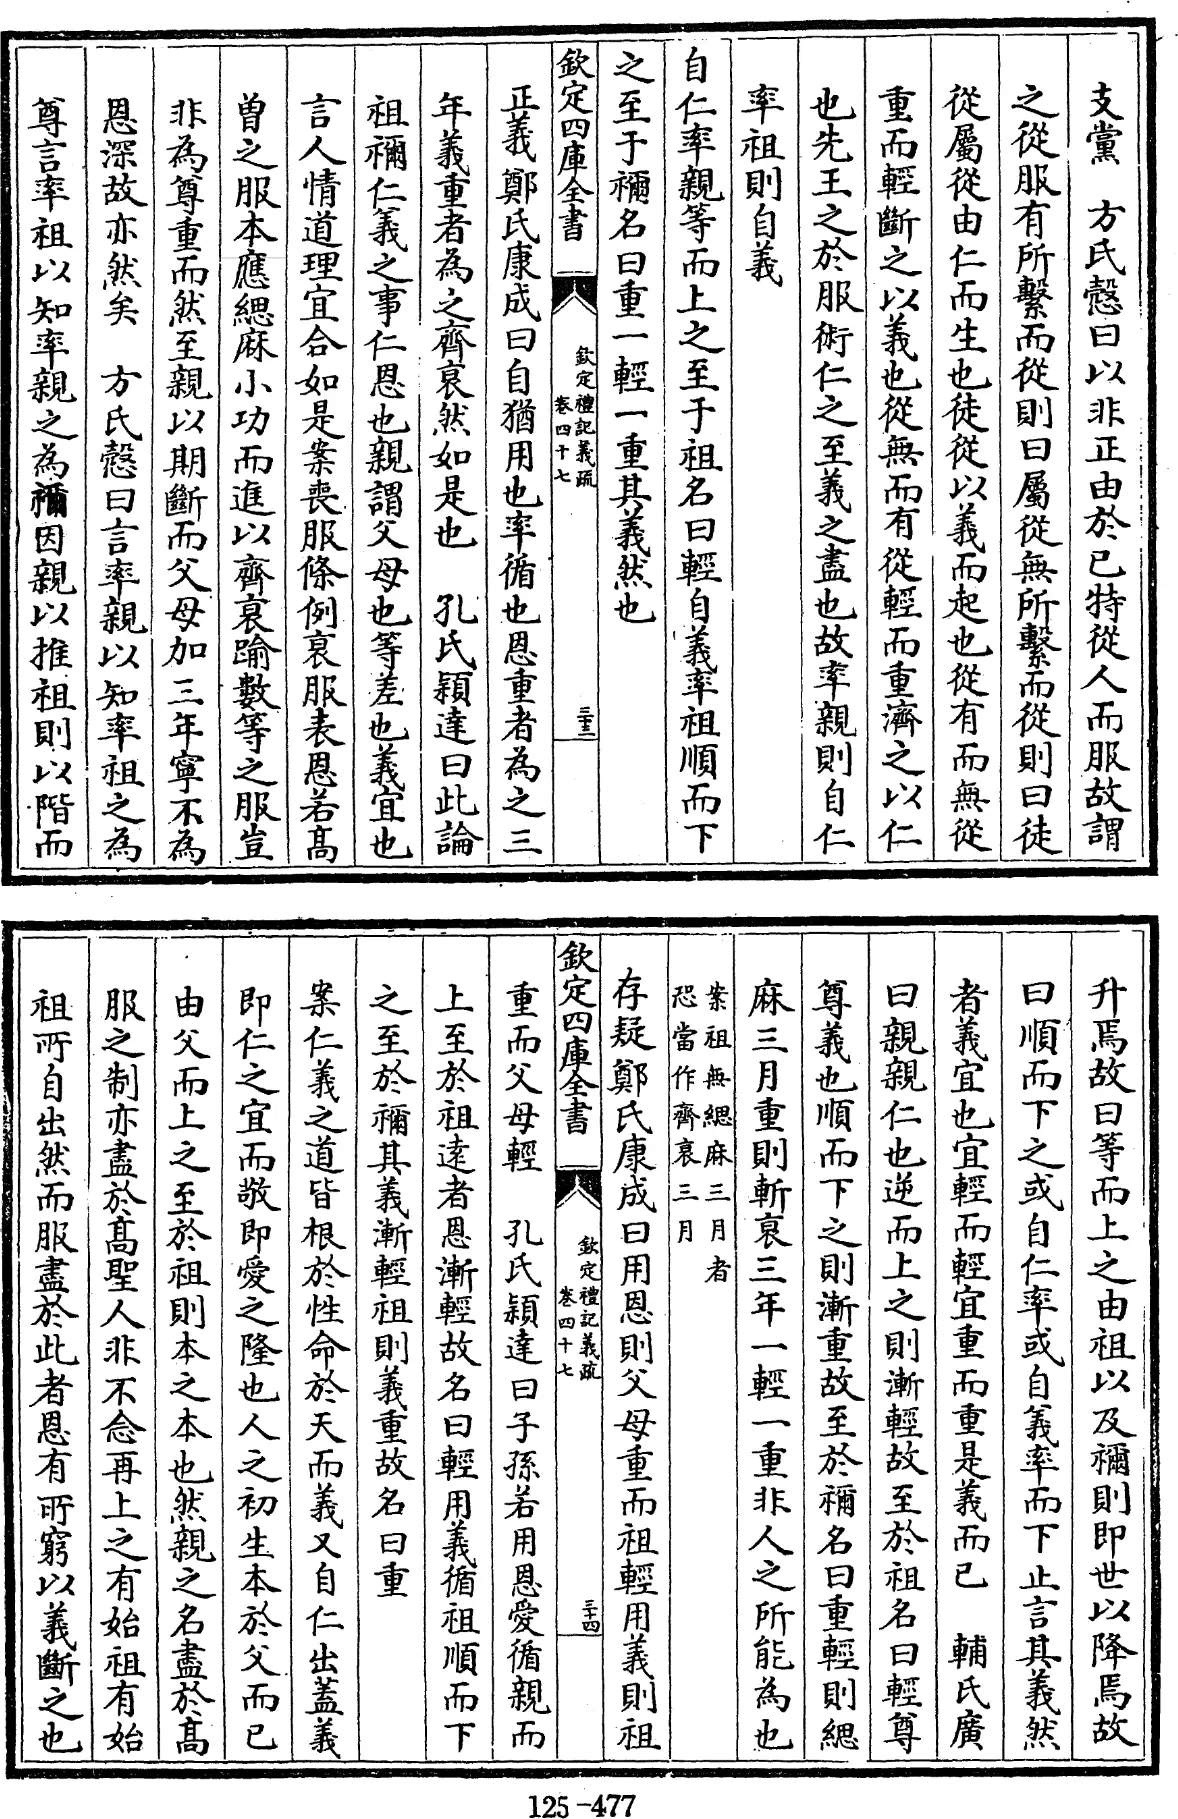 支黨　方氏慤曰以非正由於已特從人而服故謂
之從服有所繫而從則曰屬從無所繫而從則曰徒
從屬從由仁而生也徒從以義而起也從有而無從
重而輕斷之以義也從無而有從輕而重濟之以仁
也先王之於服術仁之至義之盡也故率親則自仁
率祖則自義
自仁率親等而上之至于祖名曰輕自義率祖順而下
之至于禰名曰重一輕一重其義然也
欽定四庫全書
欽定禮記義疏
卷四十七
三十三
正義鄭氏康成曰自猶用也率循也恩重者為之三
年義重者為之齊衰然如是也　孔氏穎達曰此論
祖禰仁義之事仁恩也親謂父母也等差也義宜也
言人情道理宜合如是案喪服條例衰服表恩若髙
曾之服本應緦麻小功而進以齊衰踰數等之服豈
非為尊重而然至親以期斷而父母加三年寧不為
恩深故亦然矣　方氏慤曰言率親以知率祖之為
尊言率祖以知率親之為禰因親以推祖則以階而
升焉故曰等而上之由祖以及禰則即世以降焉故
曰順而下之或自仁率或自義率而下止言其義然
者義宜也宜輕而輕宜重而重是義而已　輔氏廣
曰親親仁也逆而上之則漸輕故至於祖名曰輕尊
尊義也順而下之則漸重故至於禰名曰重輕則緦
麻三月重則斬衰三年一輕一重非人之所能為也
案祖無緦麻三月者
恐當作齊衰三月
存疑鄭氏康成曰用恩則父母重而祖輕用義則祖
欽定四庫全書
欽定禮記義疏
卷四十七
三十四
重而父母輕　孔氏穎達曰子孫若用恩愛循親而
上至於祖逺者恩漸輕故名曰輕用義循祖順而下
之至於禰其義漸輕祖則義重故名曰重
案仁義之道皆根於性命於天而義又自仁出蓋義
即仁之宜而敬即愛之隆也人之初生本於父而已
由父而上之至於祖則本之本也然親之名盡於髙
服之制亦盡於髙聖人非不念再上之有始祖有始
祖所自出然而服盡於此者恩有所窮以義斷之也
125-477